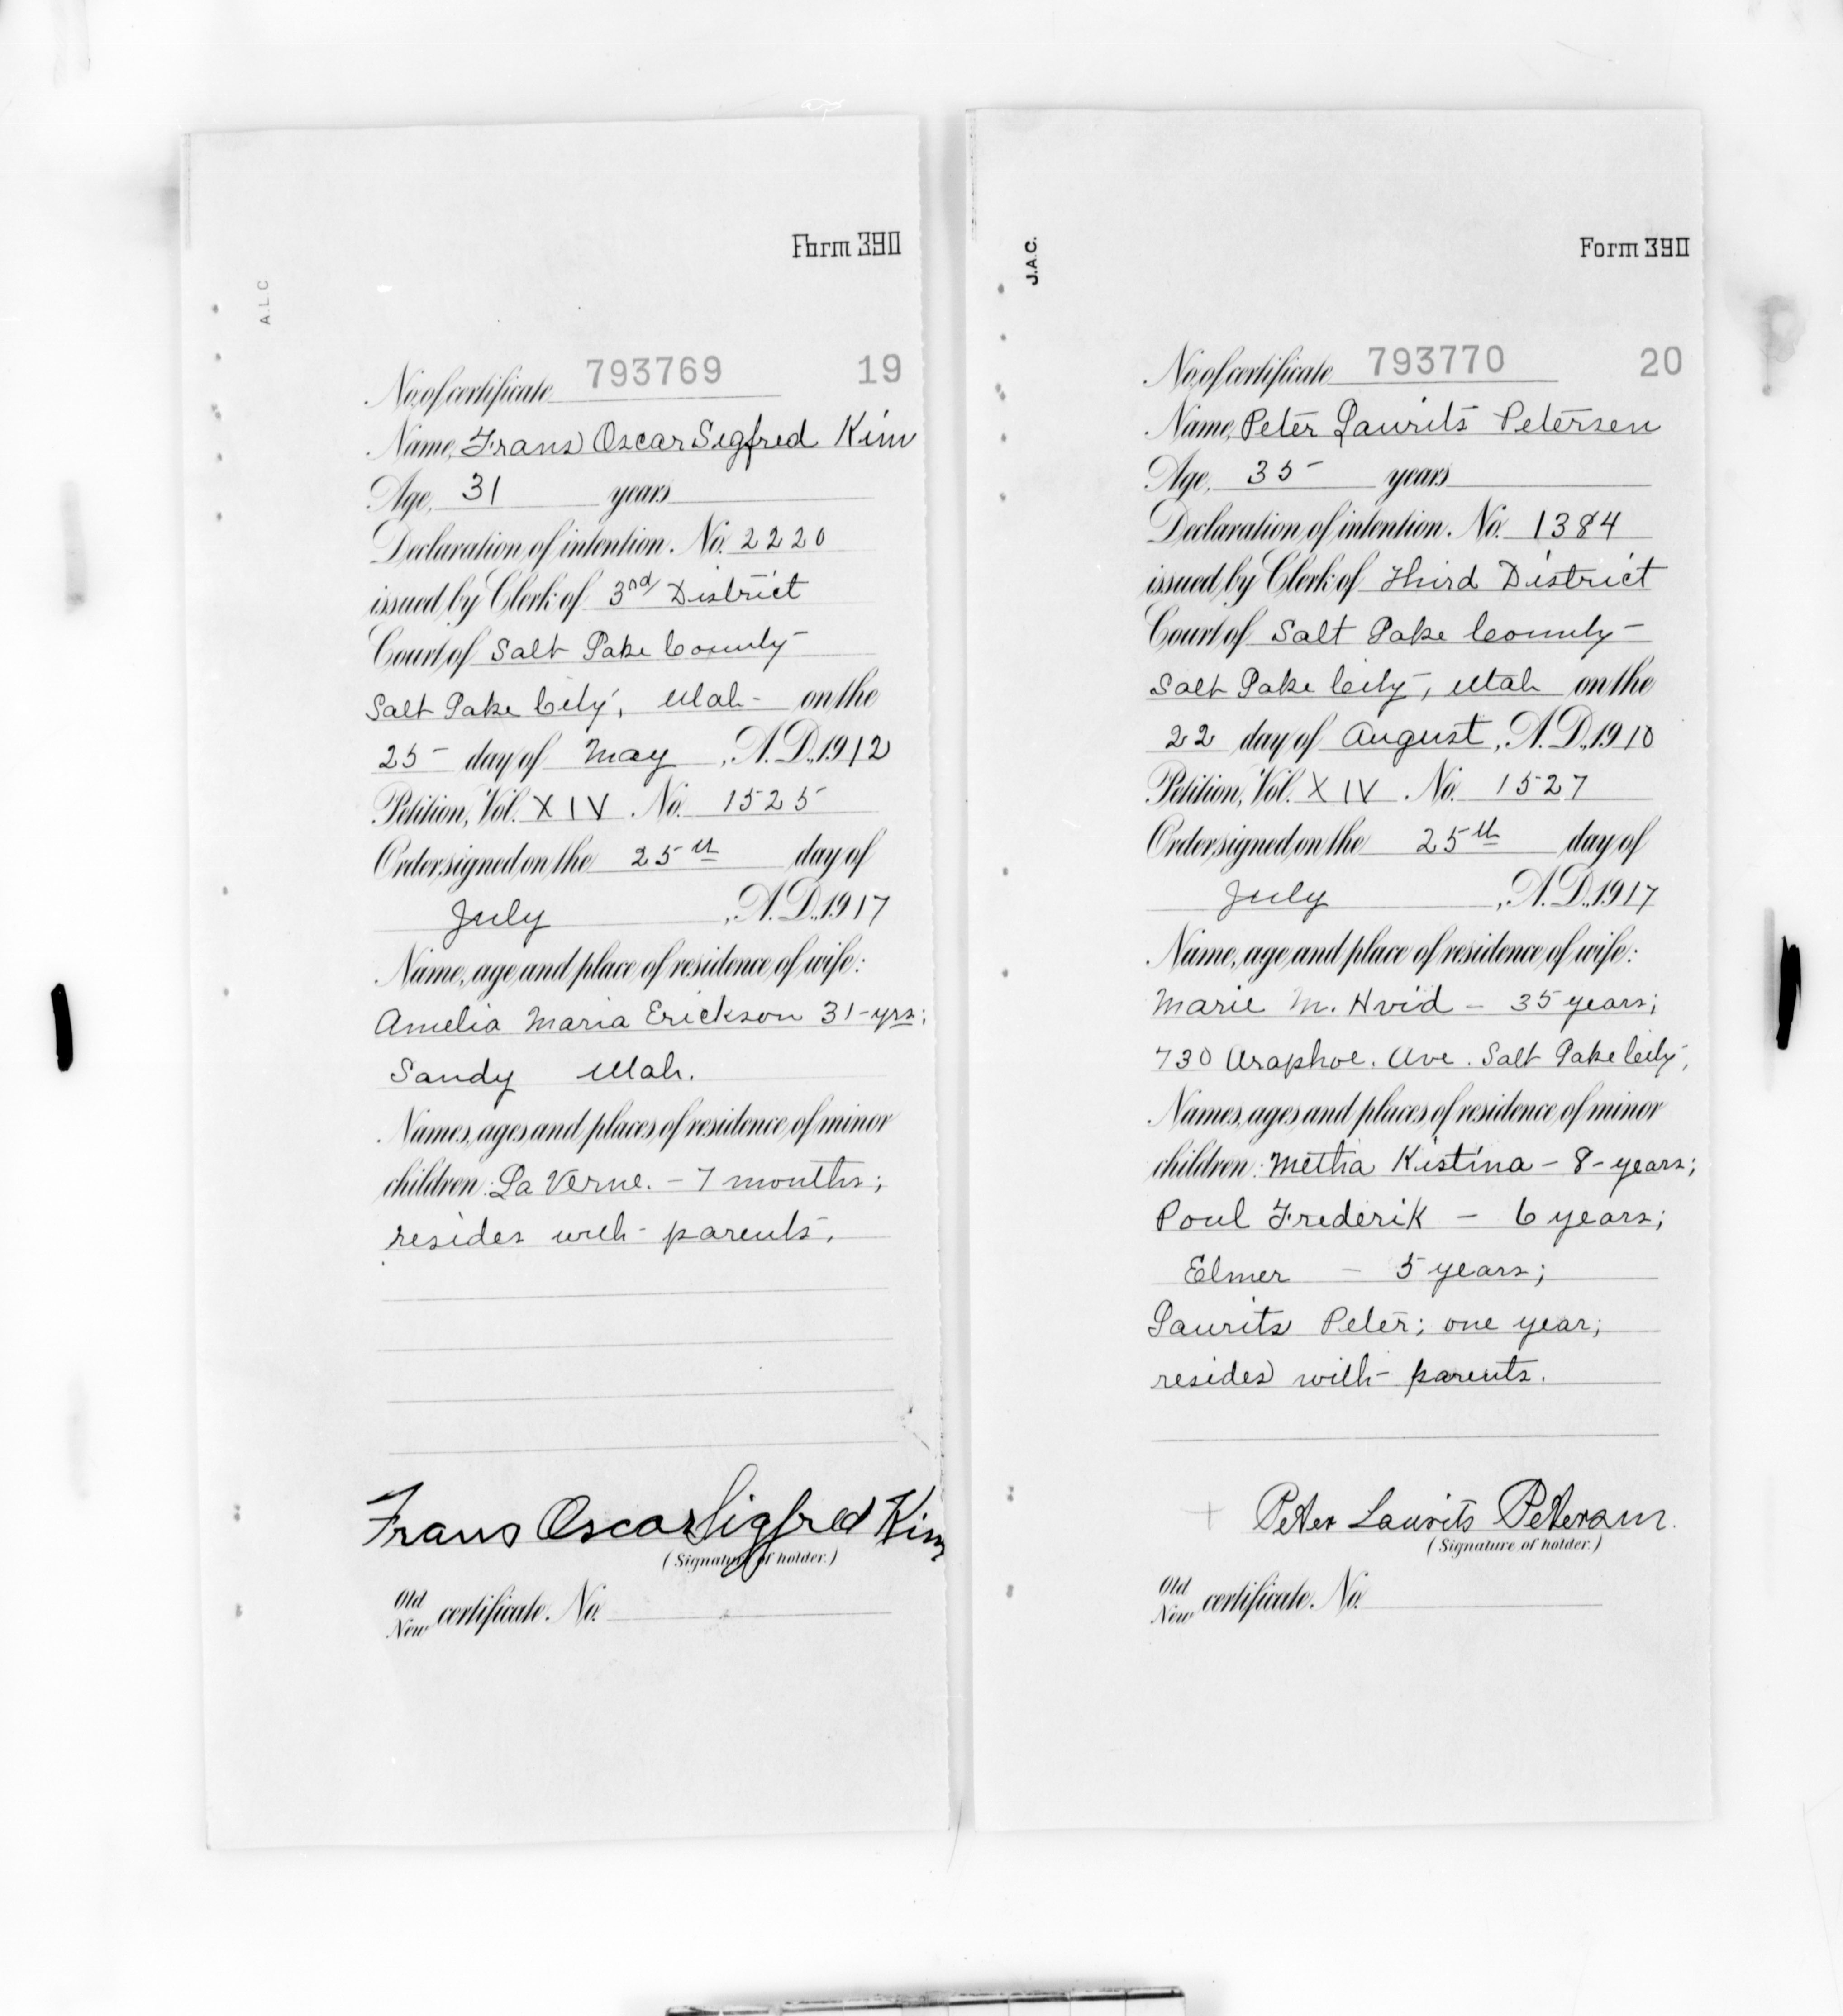 Form 390
A.L.C
No. of certificate 793769 19
Name, Frans Oscar Segfred Kim
Age, 31 years
Declaration of intention. No. 2220
issued by Clerk of 3rd District
Court of Salt Lake County
Salt Lake City, Utah on the
25 day of May, A.D., 1912
Petition, Vol. XIV. No. 1525
Order signed on the 25th day of
July, A.D., 1917
Name, age and place of residence of wife:
Amelia Maria Erickson 31-yrs;
Sandy Utah.
Names, ages and places of residence of minor
children: La Verne. - 7 months;
resides with parents.
Frans Oscar Sigfred Kim
(Signature of holder.)
Old
New certificate. No.
Form 390
J.A.C.
No. of certificate 793770 20
Name, Peter Laurits Petersen
Age, 35 years
Declaration of intention. No. 1384
issued by Clerk of Third District
Court of Salt Lake County
Salt Lake City, Utah on the
22 day of August, A.D., 1910
Petition, Vol. XIV. No. 1527
Order signed on the 25th day of
July, A.D., 1917
Name, age and place of residence of wife:
Marie M. Hvid - 35 years;
730 Araphoe. Ave. Salt Lake City,
Names, ages and places of residence of minor
children: Metha Kistina - 8 - years;
Poul Frederik - 6 years;
Elmer - 5 years;
Laurits Peter; one year;
resides with parents.
Peter Laurits Petersen.
(Signature of holder.)
Old
New certificate. No.